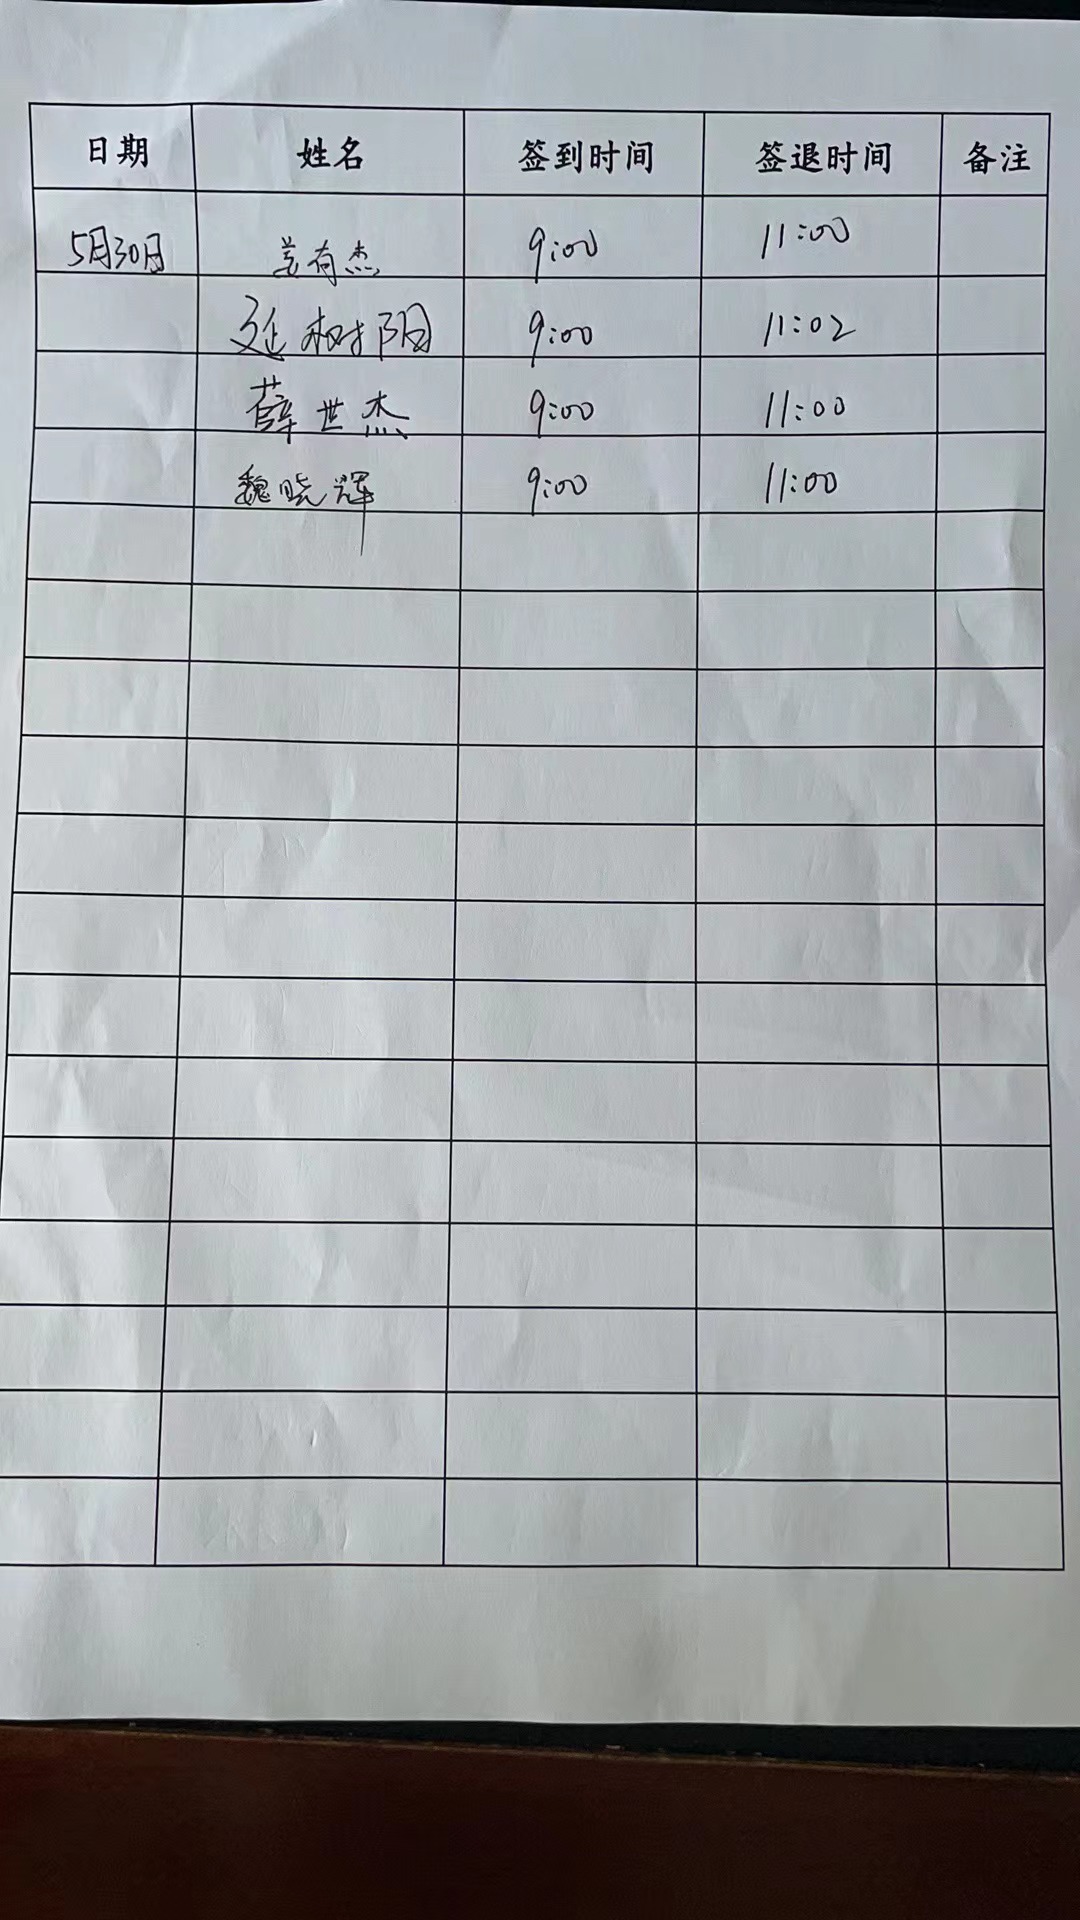 日期 姓名 签到时间 签退时间 备注
5月30日 有杰 9:00 11:00
延树阳 9:00 11:02
薛世杰 9:00 11:00
魏晓辉 9:00 11:00